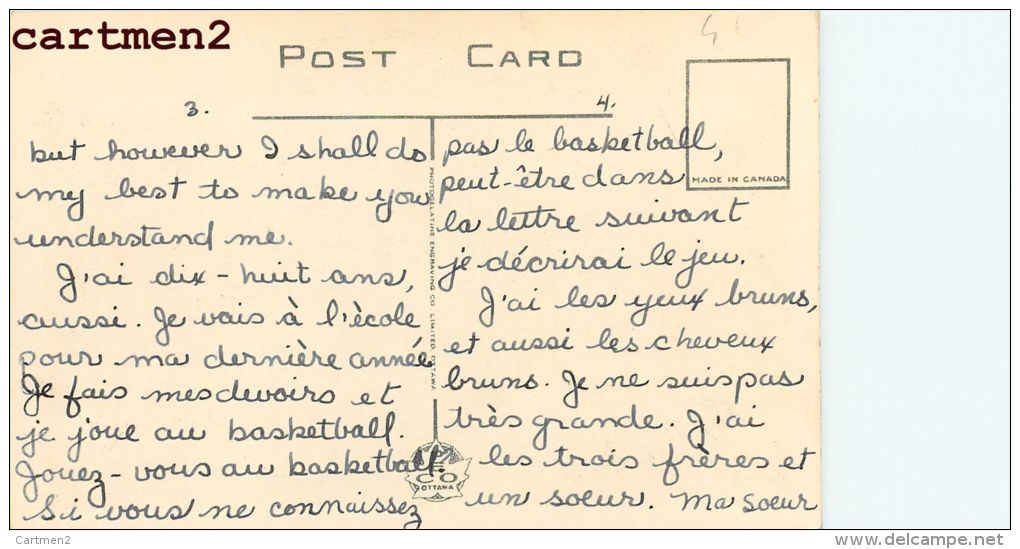 cartmen2
POST CARD
3.
but however I shall do
my best to make you
understand me.
J'ai dix-huit ans,
aussi. Je vais à l'école
pour ma dernière année
Je fais mes devoirs et
je joue au basketball.
Jouez-vous au basketball.
Si vous ne connaissez
4.
pas le basketball,
peut-être dans
la lettre suivant
je décrirai le jeu.
J'ai les yeux bruns,
et aussi les cheveux
bruns. Je ne suis pas
très grande. J'ai
les trois frères et
un soeur. Ma soeur
MADE IN CANADA
PHOTOGELATINE ENGRAVING CO. LIMITED. OTTAWA
PECO
OTTAWA
Cartmen2
delcampe.net